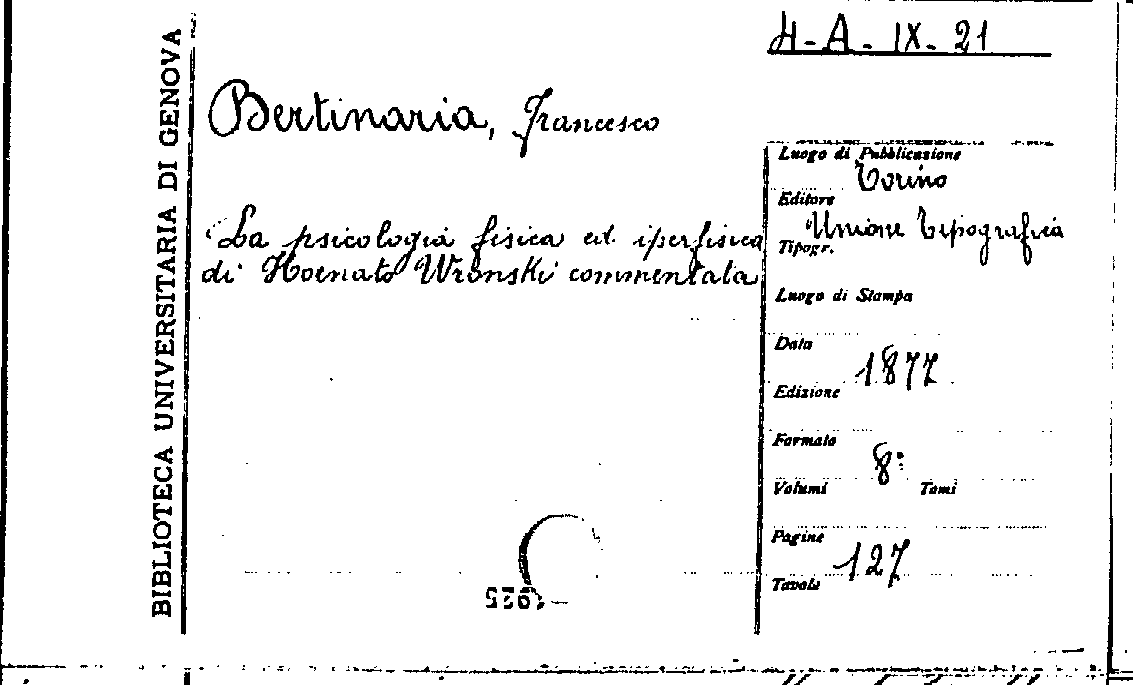 4-A-IX-21
BIBLIOTECA UNIVERSITARIA DI GENOVA
Bertinaria, Francesco
La psicologia fisica ed iperfisica
di Hoenato Wronski commentata
Luogo di Pubblicazione
Torino
Editore
Unione Tipografia
Tipogr.
Luogo di Stampa
Data
1877
Edizione
Formato
8°
Volumi Tomi
Pagine
127
Tavole